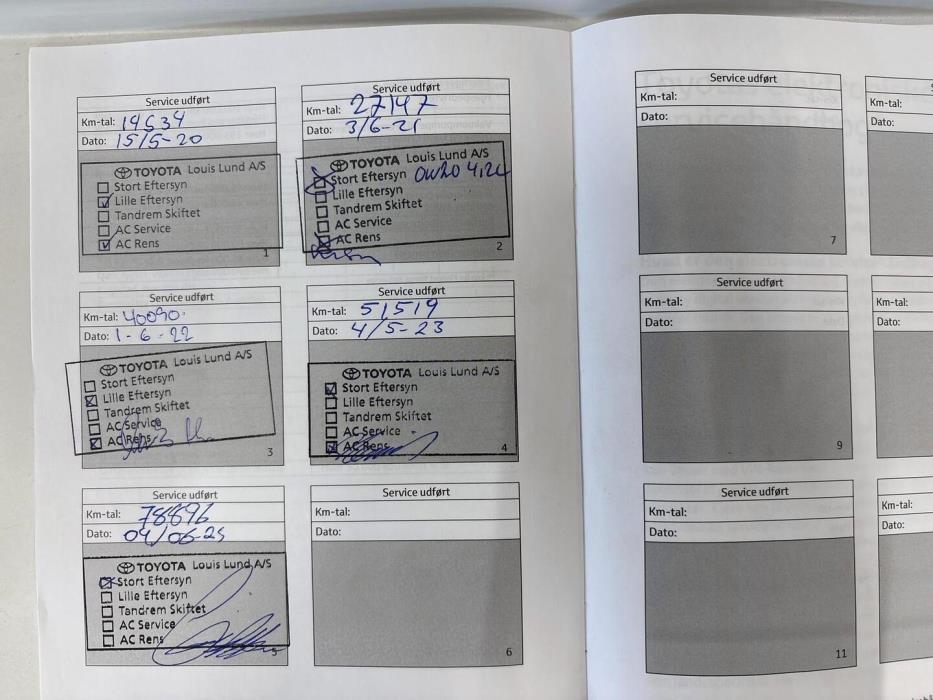 Service udført
Km-tal: 19634
Dato: 15/5-20
TOYOTA Louis Lund A/S
Stort Eftersyn
Lille Eftersyn
Tandrem Skiftet
AC Service
AC Rens
1
Service udført
Km-tal: 27147
Dato: 3/6-21
TOYOTA Louis Lund A/S
Stort Eftersyn 0W20 4,2L
Lille Eftersyn
Tandrem Skiftet
AC Service
AC Rens
2
Service udført
Km-tal: 40090.
Dato: 1-6-22
TOYOTA Louis Lund A/S
Stort Eftersyn
Lille Eftersyn
Tandrem Skiftet
AC Service
AC Rens
3
Service udført
Km-tal: 51519
Dato: 4/5-23
TOYOTA Louis Lund A/S
Stort Eftersyn
Lille Eftersyn
Tandrem Skiftet
AC Service
AC Rens
4
Service udført
Km-tal: 78896
Dato: 04/06-25
TOYOTA Louis Lund A/S
Stort Eftersyn
Lille Eftersyn
Tandrem Skiftet
AC Service
AC Rens
5
Service udført
Km-tal:
Dato:
6
Service udført
Km-tal:
Dato:
7
Km-tal:
Dato:
Service udført
Km-tal:
Dato:
9
Km-tal:
Dato:
Service udført
Km-tal:
Dato:
11
Km-tal:
Dato: